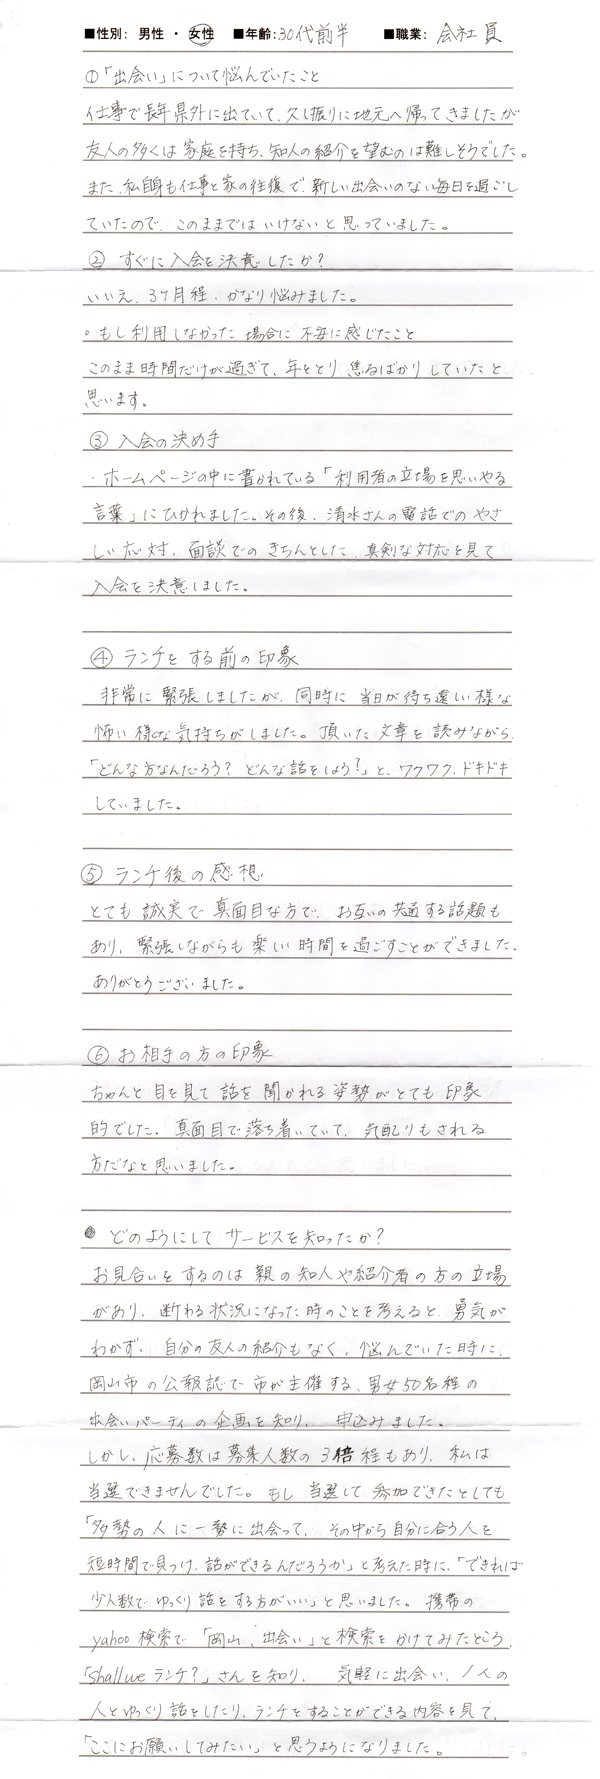 ■性別: 男性 ・ 女性 ■年齢:30代前半 ■職業: 会社員
①「出会い」について悩んでいたこと
仕事で長年県外に出ていて、久し振りに地元へ帰ってきましたが
友人の多くは家庭を持ち、知人の紹介を望むのは難しそうでした。
また、私自身も仕事と家の往復で、新しい出会いのない毎日を過ごし
ていたので、このままではいけないと思っていました。
② すぐに入会を決意したか?
いいえ、3ヶ月程、かなり悩みました。
○もし利用しなかった場合に不安に感じたこと
このまま時間だけが過ぎて、年をとり焦るばかりしていたと
思います。
③ 入会の決め手
・ホームページの中に書かれている「利用者の立場を思いやる
言葉」にひかれました。その後、清水さんの電話でのやさ
しい応対、面談でのきちんとした、真剣な対応を見て
入会を決意しました。
④ ランチをする前の印象
非常に緊張しましたが、同時に当日が待ち遠しい様な
怖い様な気持ちがしました。頂いた文章を読みながら、
「どんな方なんだろう? どんな話をしよう?」と、ワクワク、ドキドキ
していました。
⑤ ランチ後の感想
とても誠実で真面目な方で、お互いの共通する話題も
あり、緊張しながらも楽しい時間を過ごすことができました。
ありがとうございました。
⑥ お相手の方の印象
ちゃんと目を見て話を聞かれる姿勢がとても印象
的でした。真面目で落ち着いていて、気配りもされる
方だなと思いました。
● どのようにしてサービスを知ったか?
お見合いをするのは親の知人や紹介者の方の立場
があり、断わる状況になった時のことを考えると、勇気が
わかず、自分の友人の紹介もなく、悩んでいた時に、
岡山市の公報誌で市が主催する、男女50名程の
出会いパーティの企画を知り、申込みました。
しかし、応募数は募集人数の3倍程もあり、私は
当選できませんでした。もし当選して参加できたとしても
「多勢の人に一勢に出会って、その中から自分に合う人を
短時間で見つけ、話ができるんだろうか」と考えた時に、「できれば
少人数でゆっくり話をする方がいい」と思いました。携帯の
yahoo検索で「岡山、出会い」と検索をかけてみたところ、
「Shall we ランチ?」さんを知り、気軽に出会い、1人の
人とゆっくり話をしたり、ランチをすることができる内容を見て、
「ここにお願いしてみたい」と思うようになりました。